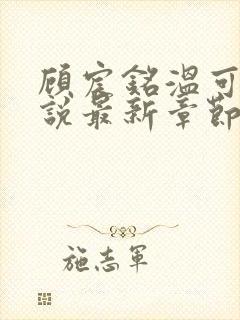 顾宸銘溫可
說最新章節
施志軍